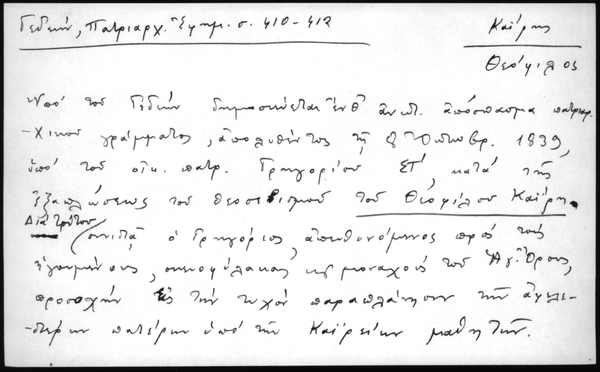 Γεδεών, Πατριαρχ. Ἐφημ. σ. 410-412
Καΐρης
Θεόφιλος
Ὑπό τοῦ Γεδεών δημοσιεύεται ἐνθ' ἀνωτ. ἀπόσπασμα πατριαρ-
-χικοῦ γράμματος, ἀπολυθέντος τῇ 8 Ὀκτωβρ. 1839,
ὑπό τοῦ οἰκ. πατρ. Γρηγορίου ΣΤ', κατά τῆς
ἐξαπλώσεως τοῦ θεοσεβισμοῦ τοῦ Θεοφίλου Καΐρη.
Διά τούτου συνιστᾷ ὁ Γρηγόριος, ἀπευθυνόμενος πρός τούς
ἡγουμένους, σκευοφύλακας καί μοναχούς τοῦ Ἁγ. Ὄρους,
προσοχήν εἰς τήν τυχόν παραπλάνησιν τῶν ἀφελε-
-στέρων πατέρων ὑπό τῶν Καϊρείων μαθητῶν.